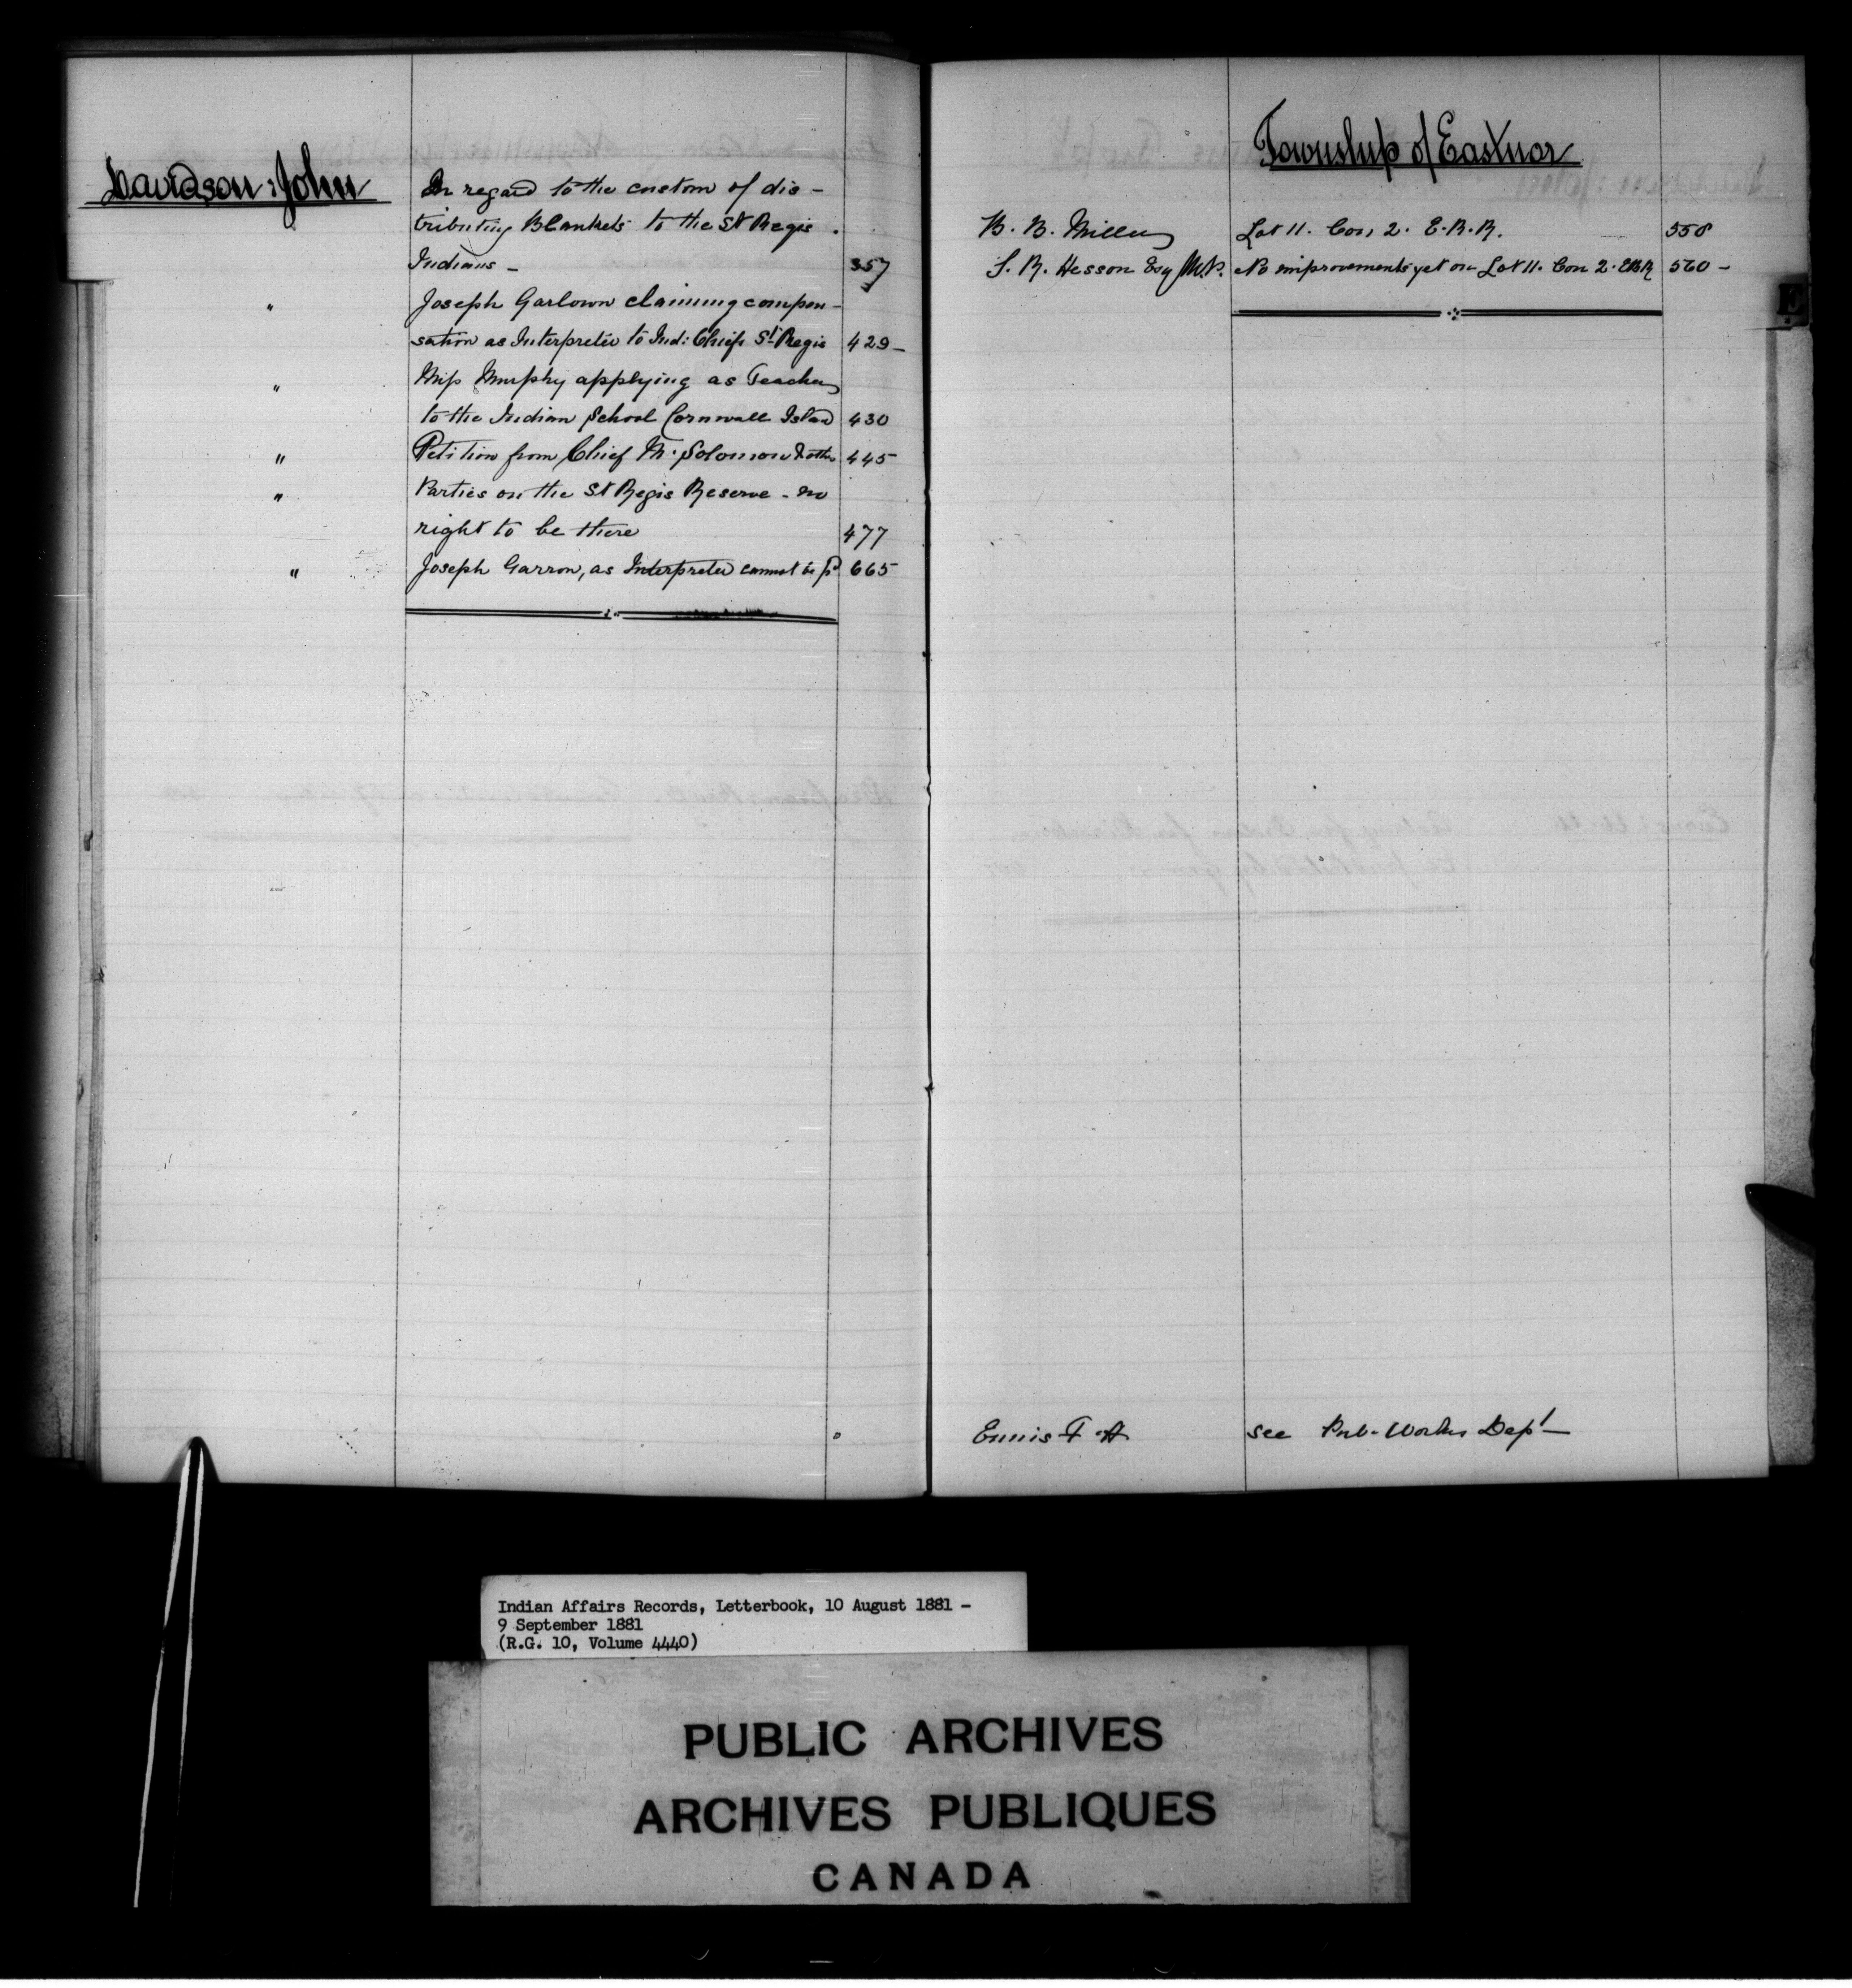 Davidson: John
In regard to the custom of dis-
tributing Blankets to the St Regis
Indians - 357
" Joseph Garlown claiming compen-
sation as Interpreter to Ind: Chiefs St Regis 429-
" Miss Murphy applying as Teacher
to the Indian School Cornwall Island 430
" Petition from Chief M. Solomon & others 445
" Parties on the St Regis Reserve - no
right to be there 477
" Joseph Garron, as Interpreter cannot be pd 665
Township of Eastnor
B. B. Miller Lot 11. Con 2. E.B.R. 558
S. R. Hesson Esq M.P. No improvements yet on Lot 11. Con 2. EBR 560 -
E
Ennis F. H. see Pub. Works Dept
Indian Affairs Records, Letterbook, 10 August 1881 -
9 September 1881
(R.G. 10, Volume 4440)
PUBLIC ARCHIVES
ARCHIVES PUBLIQUES
CANADA